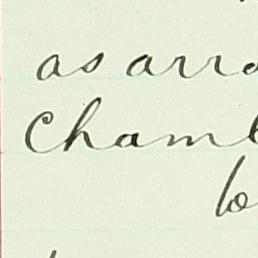 as arra
Chamb
be